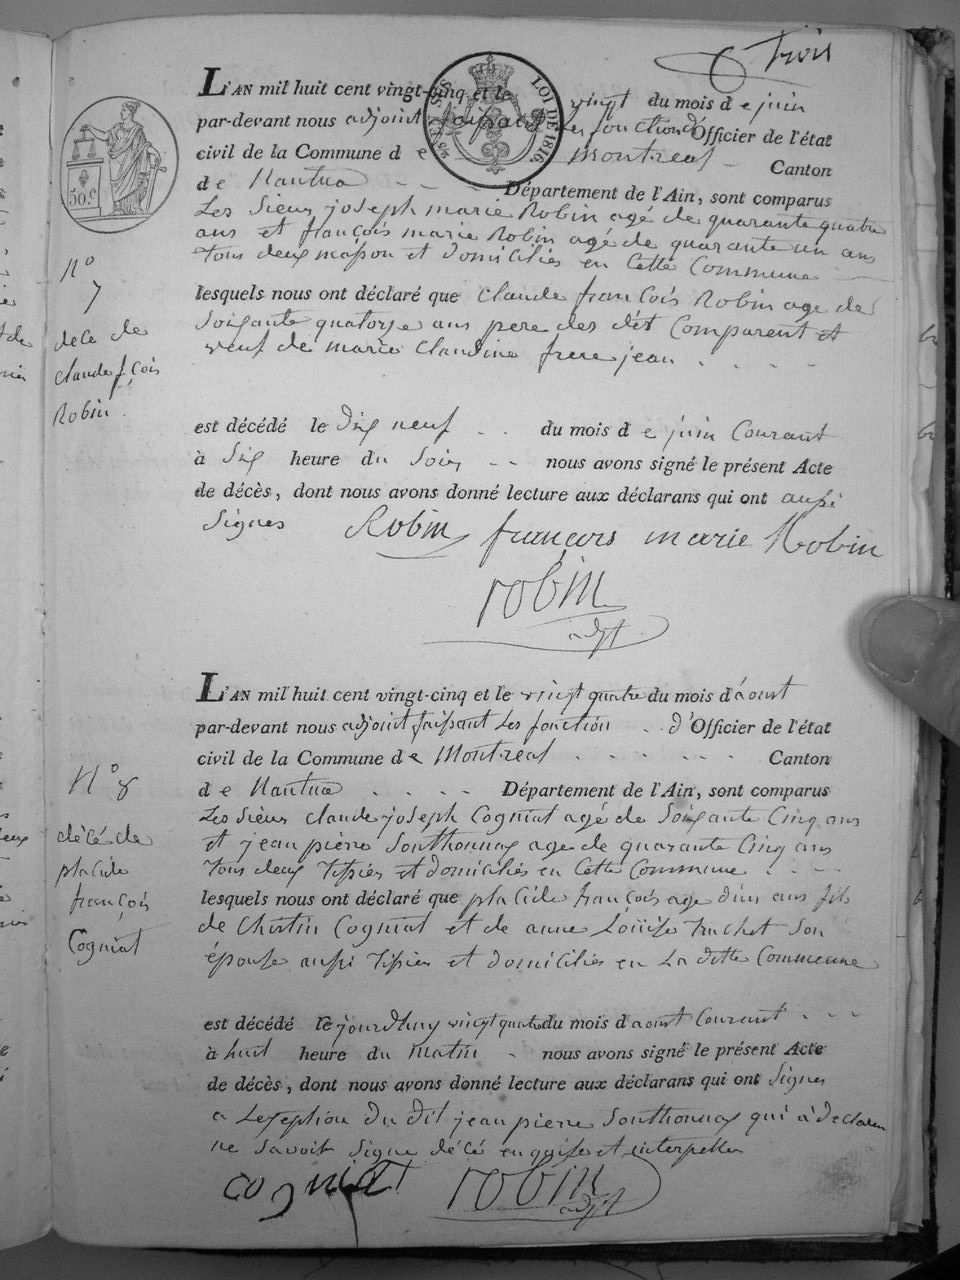 Trois
L'AN mil huit cent vingt-cinq et le vingt du mois de juin
par-devant nous adjoint faisant les fonction d'Officier de l'état
civil de la Commune de Montreal Canton
de Nantua - - - Département de l'Ain, sont comparus
Les Sieur joseph marie Robin agé de quarante quatre
ans et françois marie Robin agé de quarante un ans
tous deux masson et domiciliés en Cette Commune
lesquels nous ont déclaré que Claude françois Robin age de
Soisante quatorze ans pere des dit Comparent et
veuf de marie Claudine frere jean . . . .
est décédé le dix neuf . . du mois de juin Courant
à Six heure du Soir - - nous avons signé le présent Acte
de décès, dont nous avons donné lecture aux déclarans qui ont aussi
Signes Robin françois marie Robin
robin
adjt
50.c
LOI DE 1816
N°
7
dece de
claude f çois
Robin.
L'AN mil huit cent vingt-cinq et le vingt quatre du mois d'aout
par-devant nous adjoint faisant Les fonction . . d'Officier de l'état
civil de la Commune de Montreal . . . . . . Canton
de Nantua . . . . Département de l'Ain, sont comparus
Les Sieurs claude joseph Cogniat agé de Soisante Cinq ans
et jean pierre Southonnax age de quarante Cinq ans
tous deux tissiés et domiciliés en Cette Commune . . . .
lesquels nous ont déclaré que placide françois age d'un ans fils
de Cogniat et de anne Loüise truchet Son
épouse aussi tissier et domiciliés en La ditte Commenne
est décédé le jourdhuy vingt quatre du mois d'aout Courant . . .
à huit heure du matin - nous avons signé le présent Acte
de décès, dont nous avons donné lecture aux déclarans qui ont Signes
a Leseption du dit jean pierre Southonnax qui à declarer
ne Savoir Signe de cé enquise et interpeller
cogniat robin
adjt
N° 8
décé de
placide
françois
Cogniat